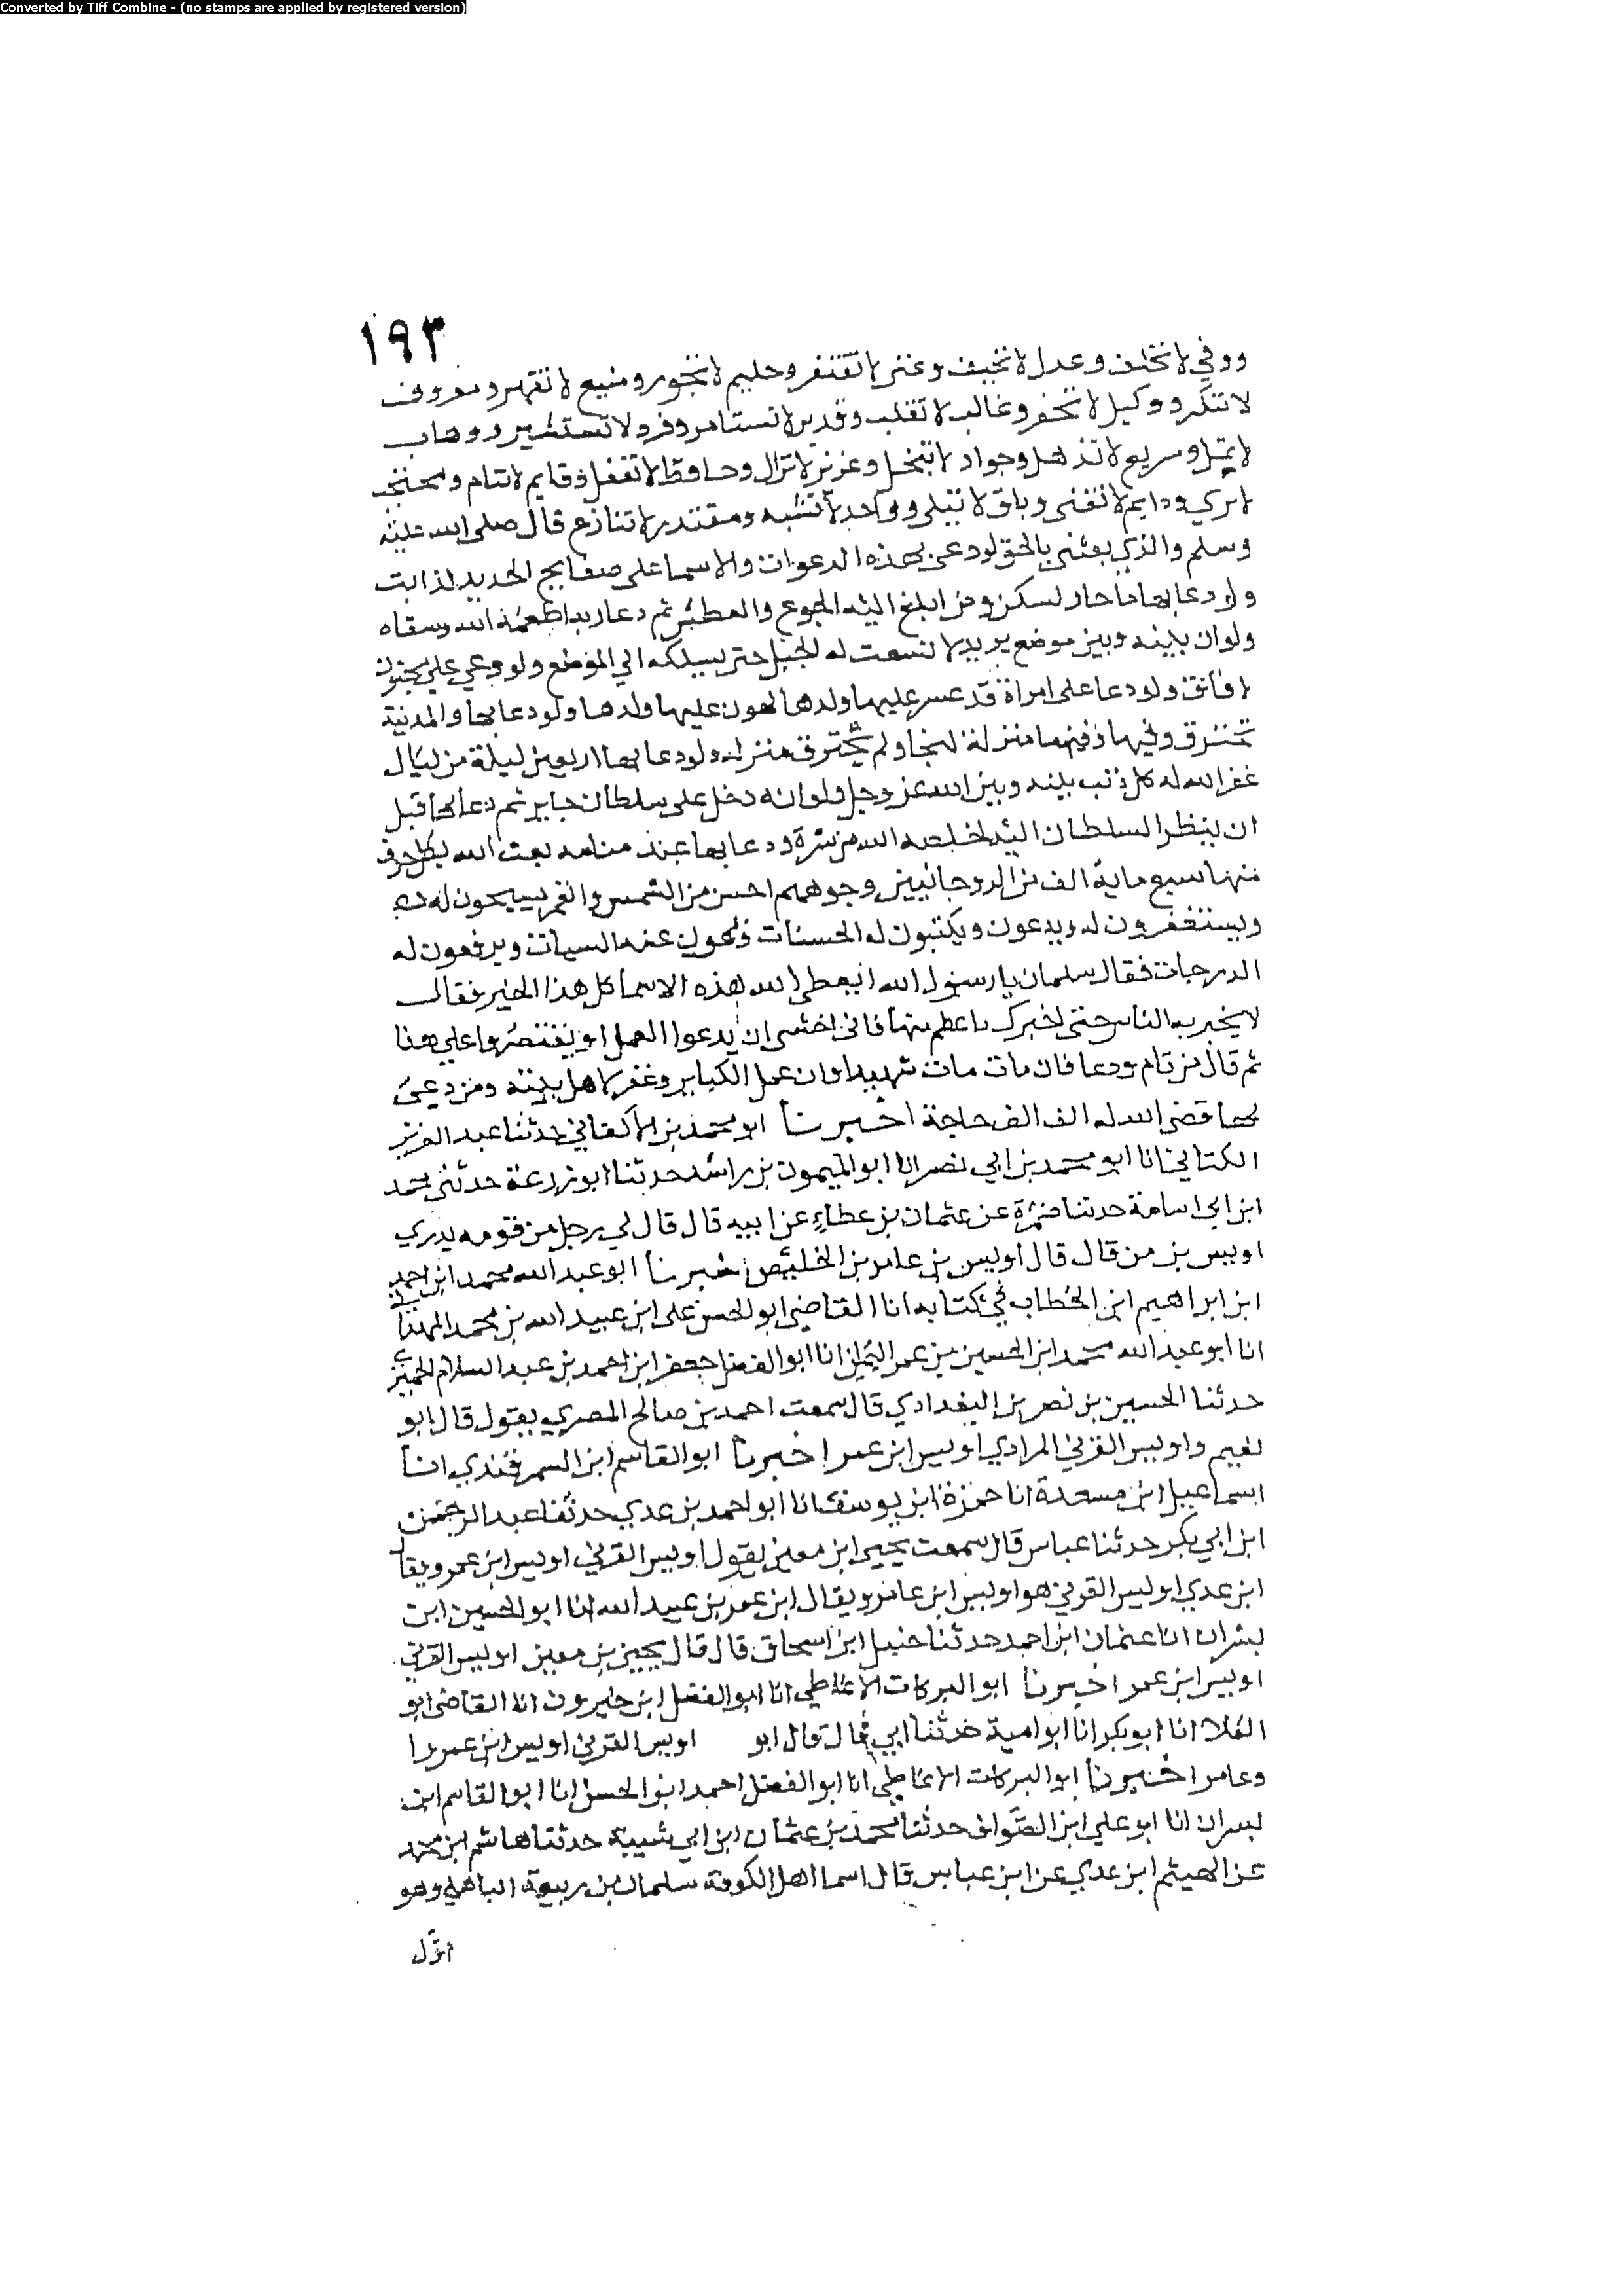 Converted by Tiff Combine - (no stamps are applied by registered version)
١٩٣
ووفي لا تخلف وعدل لا تحيف وغني لا تفتقر وحليم لا تجور ومنيع لا تقهر ومعروف
لا تنكر ووكيل لا تحفر وغالب لا تغلب وقدير لا تستامر وفرد لا تستشير ووهاب
لا تمل وسريع لا تذهل وجواد لا تبخل وعزيز لا تزال وحافظا لا تغفل وقايم لا تنام ومحتجب
لا تري ودايم لا تفنى وباق لا تبلى وواحد لا تشبه ومقتدر لا تنازع قال صلى الله عليه
وسلم والذي بعثني بالحق لو دعى بهذه الدعوات والاسما على صفايح الحديد لذابت
ولو دعا بها ما جار لسكن ومن ابلغ اليه الجوع والعطش ثم دعا ربه اطعمه الله وسقاه
ولو ان بينه وبين موضع يريد لا تسعت له الجبل حتى يسلكه الي الموضع ولو دعي على مجنون
لا فاق ولو دعا على امراة قد عسر عليها ولدها لهون عليها ولدها ولو دعا بها والمدينة
تحترق وفيها منزله لنجا ولم يحترق منزله ولو دعا بها اربعين ليلة من ليال
غفر الله له كل ذنب بينه وبين الله عز وجل ولو انه دخل على سلطان جاير ثم دعا بها قبل
ان ينظر السلطان اليه لخلصه الله من شره ودعا بها عند منامه بعث الله بكل حرف
منها سبع ماية الف من الروحانيين وجوههم احسن من الشمس والقمر يسبحون له
ويستغفرون له ويدعون ويكتبون له الحسنات ويمحون عنه السيات ويرفعون له
الدرجات فقال سلمان يا رسول الله ايعطى الله هذه الاسما كل هذا الخير فقال
لا يخبر به الناس حتى اخبرك باعظم منها فاني اخشى ان يدعوا العمل او يقتصروا علي هذا
ثم قال من نام ودعا فان مات مات شهيدا وان عمل الكباير وغفر لاهل بيته ومن دعي
بها قضى الله له الف الف حاجة اخبرنا ابو محمد بن الاكفاني حدثنا عبد العزيز
الكتاني انا ابو محمد بن ابي نصر انا ابو الميمون بن راشد حدثنا ابو زرعة حدثني محمد
ابن ابي اسامة حدثنا ضمرة عن عثمان بن عطاء عن ابيه قال قال لي رجل من قومه يدري
اويس بن من قال قال اويس بن عامر بن الخليص اخبرنا ابو عبد الله محمد ابن احمد
ابن ابراهيم ابن الخطاب في كتابه انا القاضي ابو الحسن على ابن عبيد الله بن محمد الهمذاني
انا ابو عبد الله محمد ابن الحسين بن عمر اليمني انا ابو الفضل جعفر ابن احمد بن عبد السلام الحميري
حدثنا الحسين بن نصر بن البغدادي قال سمعت احمد بن صالح المصري يقول قال ابو
نعيم واويس القرني المرادي اويس ابن عمر اخبرنا ابو القاسم ابن السمرقندي انا
اسماعيل ابن مسعدة انا حمزة ابن يوسف انا ابو احمد بن عدي حدثنا عبد الرحمن
ابن ابي بكر حدثنا عباس قال سمعت يحيى ابن معين يقول اويس القرني اويس ابن عمرو يقا
ابن عدي اويس القرني هو اويس ابن عامر ويقال ابن عمر بن عبيد الله انا ابو الحسين ابن
بشران انا عثمان ابن احمد حدثنا حنبل ابن اسحاق قال قال يحيى بن معين اويس القرني
اويس ابن عمر اخبرنا ابو البركات الانماطي انا ابو الفضل ابن خيرون انا القاضي ابو
العلا انا ابو بكر انا ابو امية حدثنا ابي قال قال ابو اويس القرني اويس ابن عمر
وعامر اخبرنا ابو البركات الانماطي انا ابو الفضل احمد ابن الحسن انا ابو القاسم ابن
بسران انا ابو علي ابن الصواف حدثنا محمد بن عثمان ابن ابي شيبة حدثنا هاشم ابن محمد
عن الهيثم ابن عدي عن ابن عباس قال اسما اهل الكوفة سلمان بن ربيعة الباهلي وهو
اول